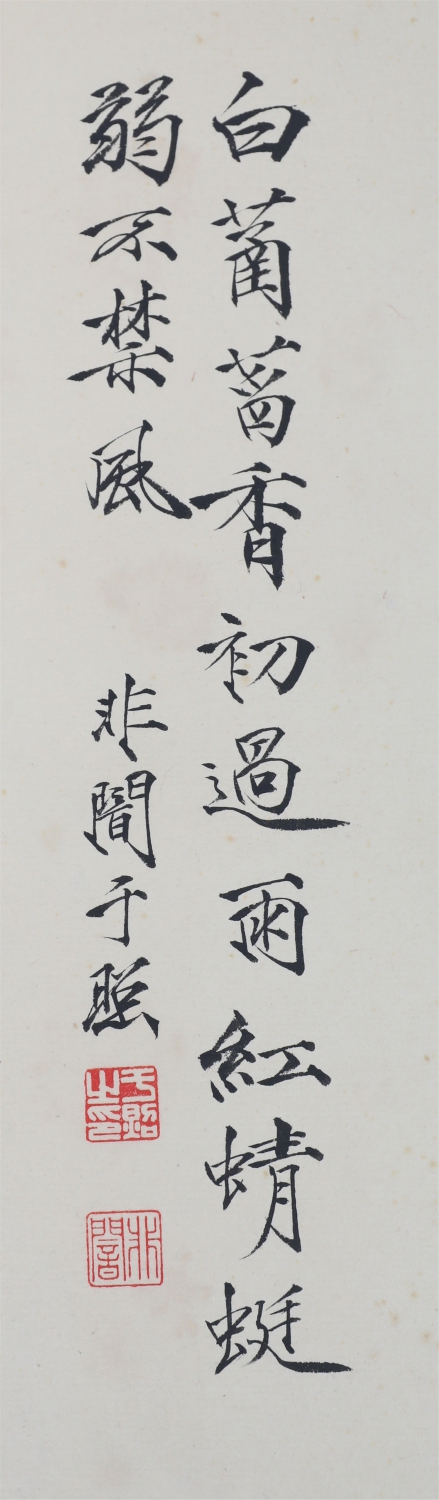 白菡萏香初過雨紅蜻蜓
弱不禁風
非闇于照
于照之印
非闇